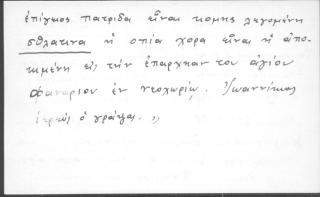 ἐπίγειος πατρίδα εἶναι κόμης λεγομένη
σθλατινα ἡ οπία χορα εἶναι ἡ ἀπο-
κιμένη εἰς τὴν ἐπαρχηαν του ἁγίου
Φαναρίου ἐν νεοχωρίῳ. Ἰωαννίκιος
ἱερεὺς ὁ γράψας. ,,